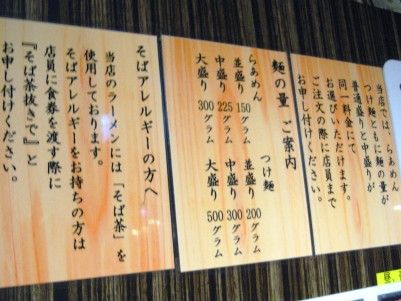 当店では、らぁめん、
つけ麺ともに麺の量が
普通盛りと中盛りが
同一料金にて
お選びいただけます。
ご注文の際に店員まで
お申し付けください。
麺の量 ご案内
らぁめん
並盛り 150 グラム
中盛り 225 グラム
大盛り 300 グラム
つけ麺
並盛り 200 グラム
中盛り 300 グラム
大盛り 500 グラム
そばアレルギーの方へ
当店のラーメンには「そば茶」を
使用しております。
そばアレルギーをお持ちの方は
店員に食券を渡す際に
『そば茶抜きで』と
お申し付けください。